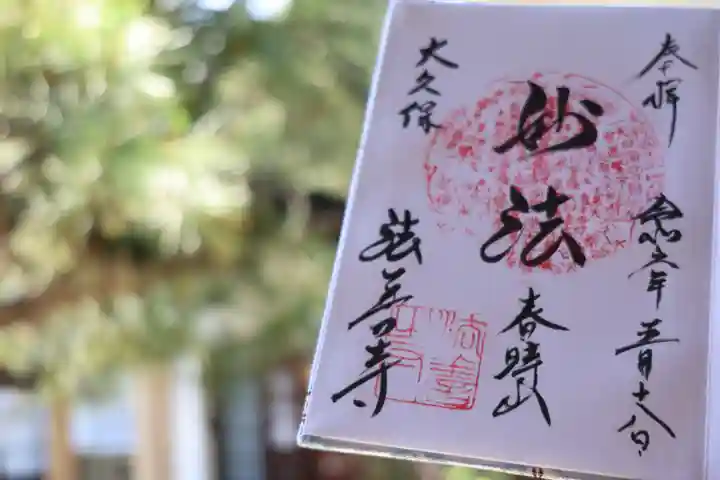 奉拝
令和五年 五月十八日
妙法
春時山
大久保
法善寺